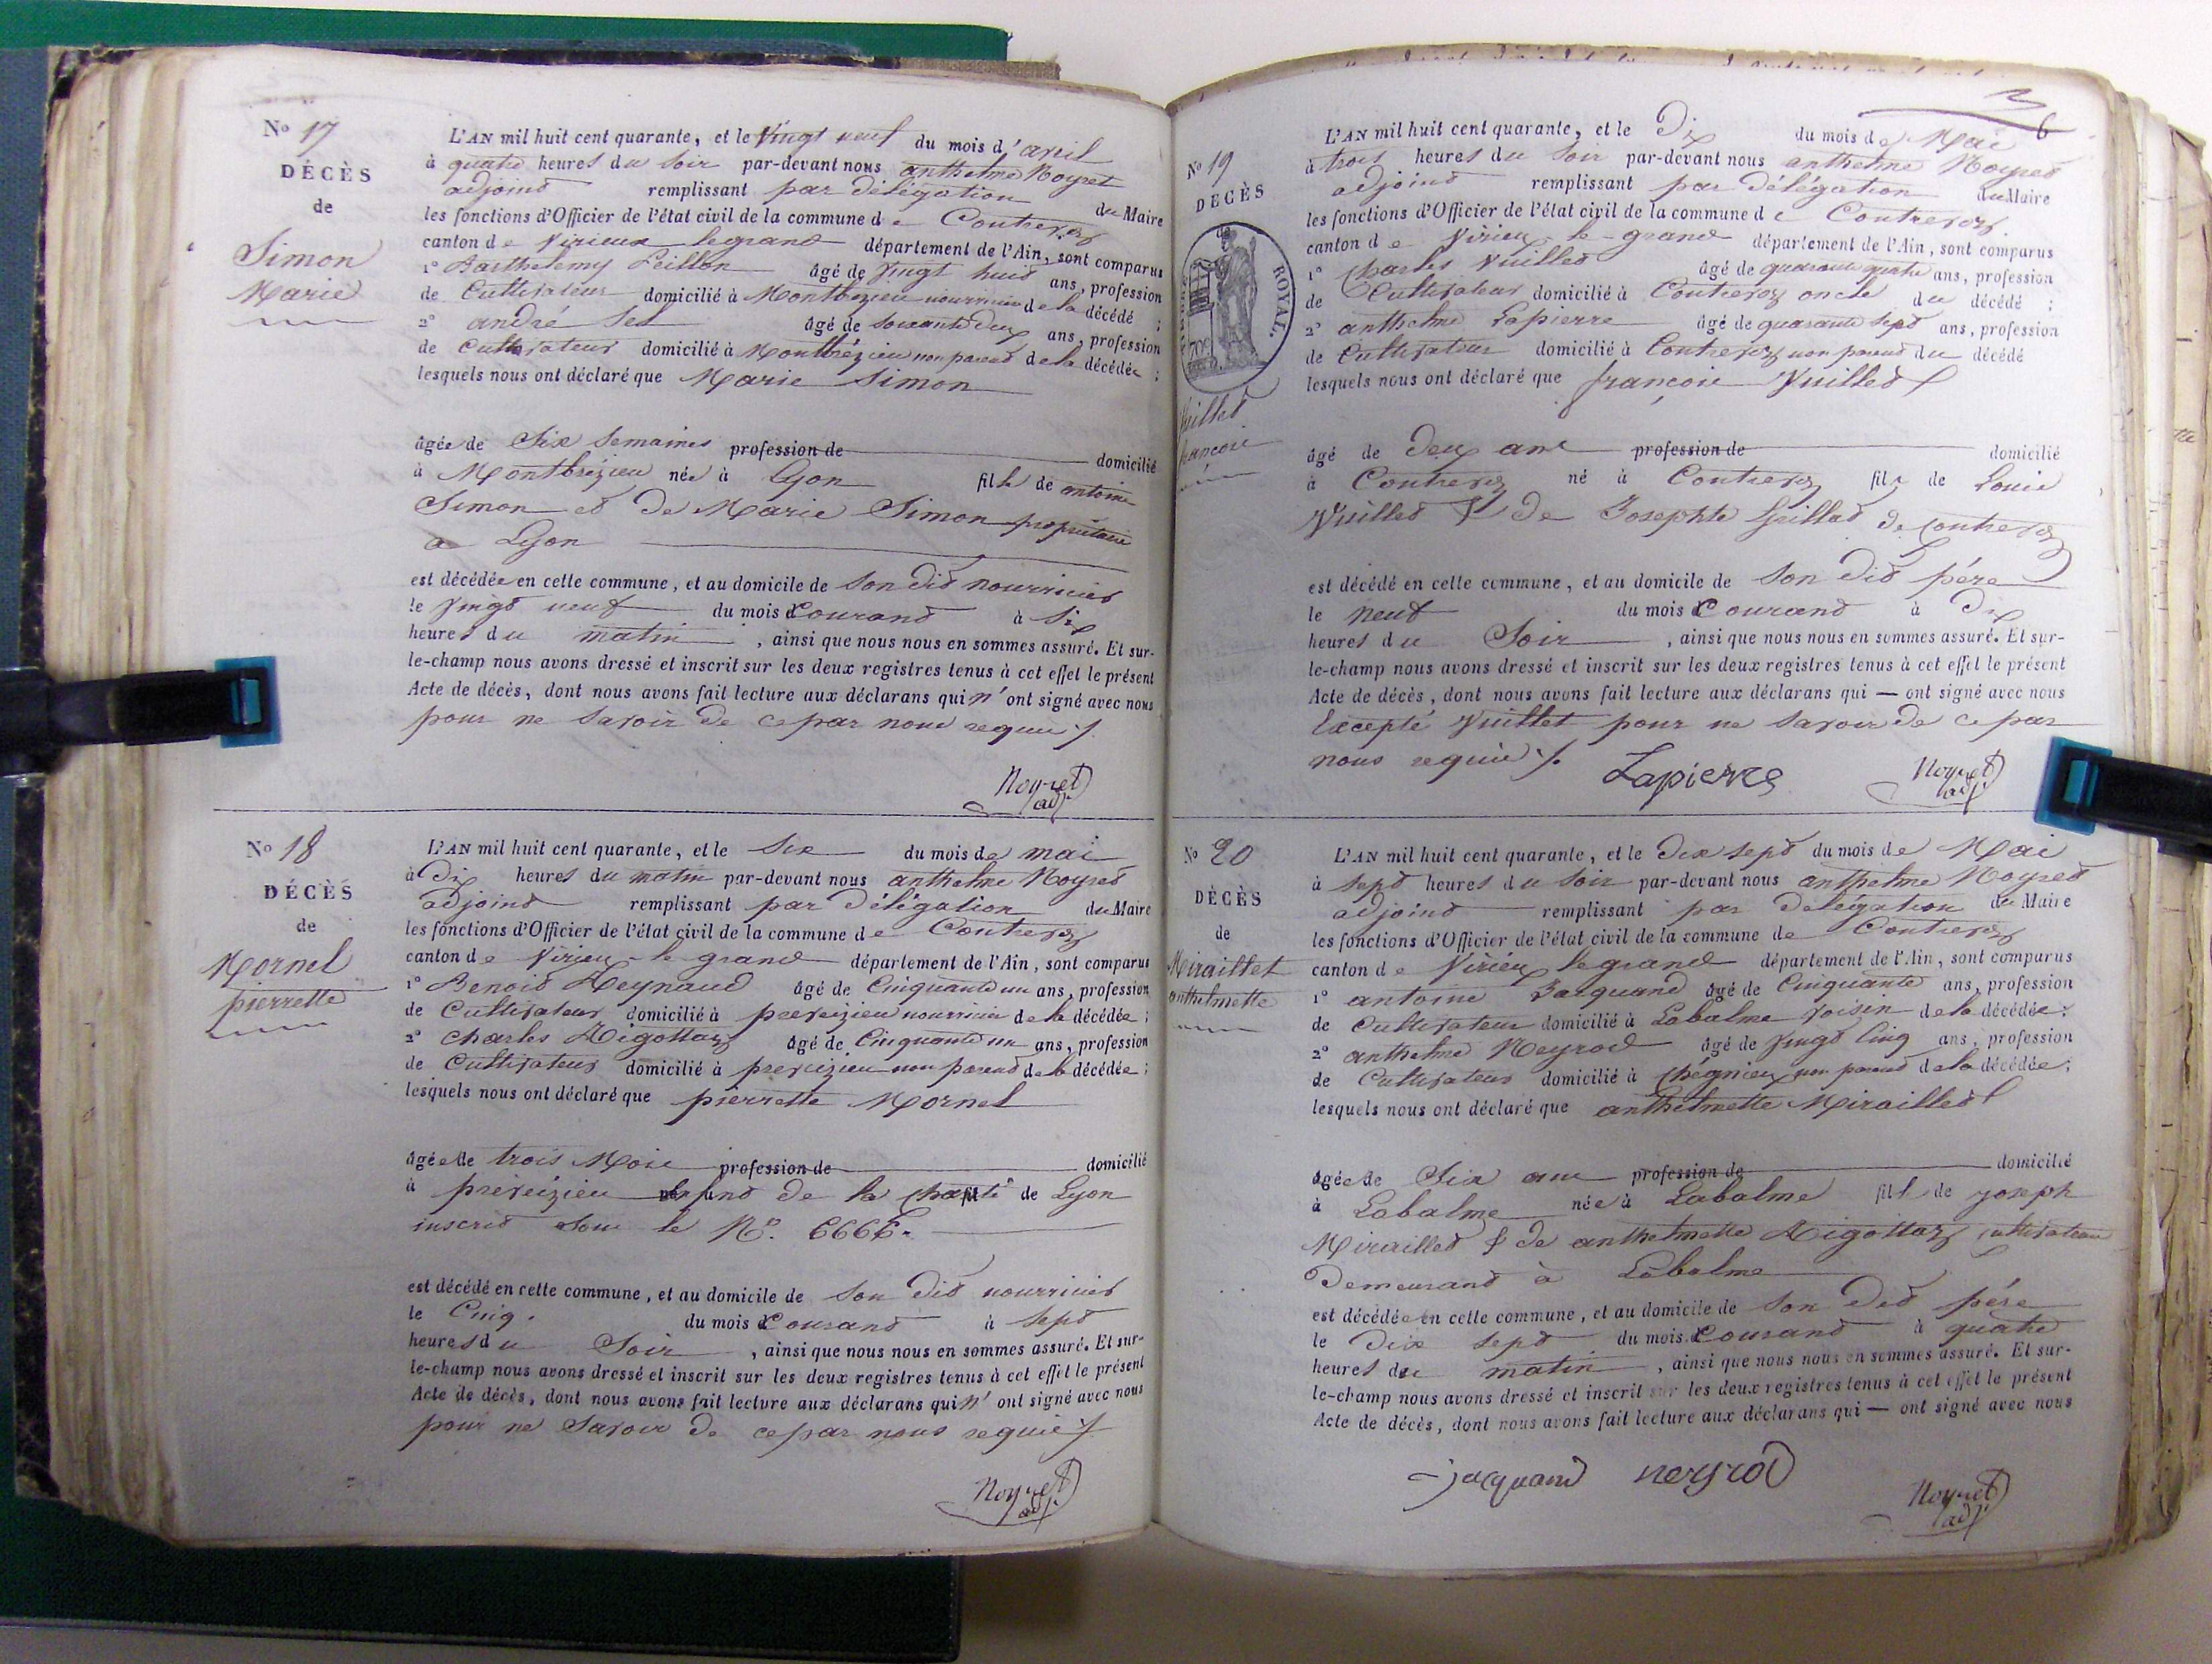 N° 17
DÉCÈS
de
Simon
Marie
L'AN mil huit cent quarante, et le Vingt neuf du mois d'avril
à quatre heures du Soir par-devant nous anthelme Noyret
adjoint remplissant par délégation du Maire
les fonctions d'Officier de l'état civil de la commune de Contrevoz
canton de Virieux legrand département de l'Ain, sont comparus
1° Barthelemy Peillon âgé de Vingt huit ans, profession
de Cultivateur domicilié à Montbrezieu nourricier de la décédé ;
2° andré Sel âgé de soixante deux ans, profession
de Cultivateur domicilié à Montbrézieu non parent de la décédée ;
lesquels nous ont déclaré que Marie Simon
âgée de Six Semaines profession de domicilié
à Montbrézieu née à Lyon fille de antoine
Simon et de Marie Simon propriétaire
a Lyon
est décédée en cette commune, et au domicile de son dit nourricier
le Vingt neuf du mois Courant à Six
heures du matin, ainsi que nous nous en sommes assuré. Et sur-
le-champ nous avons dressé et inscrit sur les deux registres tenus à cet effet le présent
Acte de décès, dont nous avons fait lecture aux déclarans qui n'ont signé avec nous
pour ne Savoir de ce par nous requis ./.
Noyret
adj.
N° 18
DÉCÈS
de
Mornel
pierrette
L'AN mil huit cent quarante, et le Six du mois de mai
à Dix heures du matin par-devant nous anthelme Noyret
adjoint remplissant par Délégation du Maire
les fonctions d'Officier de l'état civil de la commune de Contrevoz
canton de Virieu-le grand département de l'Ain, sont comparus
1° Benoit Reynaud âgé de Cinquante un ans, profession
de Cultivateur domicilié à preveizieu nourricier de la décédée ;
2° Charles Rigottaz âgé de Cinquante un ans, profession
de Cultivateur domicilié à preveizieu non parent de la décédée ;
lesquels nous ont déclaré que pierrette Mornel
âgée de trois Mois profession de domicilié
à prévéizieu enfant de la Charité de Lyon
inscrit sous le N°. 6666.
est décédé en cette commune, et au domicile de son dit nourricier
le Cinq. du mois Courant à Sept
heures du Soir, ainsi que nous nous en sommes assuré. Et sur-
le-champ nous avons dressé et inscrit sur les deux registres tenus à cet effet le présent
Acte de décès, dont nous avons fait lecture aux déclarans qui n'ont signé avec nous
pour ne Savoir de ce par nous requis ./.
Noyret
adj.
6
N° 19
DÉCÈS
de
ROYAL.
Vuillet
francois
L'AN mil huit cent quarante, et le Dix du mois de Mai
à trois heures du Soir par-devant nous anthelme Noyret
adjoint remplissant par délégation du Maire
les fonctions d'Officier de l'état civil de la commune de Contrevoz.
canton de Virieu-le-grand département de l'Ain, sont comparus
1° Charles Vuillet âgé de quarante quatre ans, profession
de Cultivateur domicilié à Contrevoz oncle du décédé ;
2° anthelme Lapierre âgé de quarante sept ans, profession
de Cultivateur domicilié à Contrevoz non parent du décédé
lesquels nous ont déclaré que françois Vuillet
âgé de Deux ans profession de domicilié
à Contrevoz né à Contrevoz fils de Louis
Vuillet & de Josephte Guillat de Contrevoz
est décédé en cette commune, et au domicile de son dit père
le neuf du mois Courant à Dix
heures du Soir, ainsi que nous nous en sommes assuré. Et sur-
le-champ nous avons dressé et inscrit sur les deux registres tenus à cet effet le présent
Acte de décès, dont nous avons fait lecture aux déclarans qui — ont signé avec nous
Excepté Vuillet pour ne Savoir de ce par
nous requis ./.
Lapierre Noyret
adj.
N° 20
DÉCÈS
de
Miraillet
anthelmette
L'AN mil huit cent quarante, et le Dix sept du mois de Mai
à Sept heures du Soir par-devant nous anthelme Noyret
adjoint remplissant par Délégation du Maire
les fonctions d'Officier de l'état civil de la commune de Contrevoz
canton de Virieu legrand département de l'Ain, sont comparus
1° antoine Jacquand âgé de Cinquante ans, profession
de Cultivateur domicilié à Labalme voisin de la décédée ;
2° anthelme Neyrod âgé de Vingt Cinq ans, profession
de Cultivateur domicilié à Chégnieu non parent de la décédée ;
lesquels nous ont déclaré que anthelmette Miraillet
âgée de Six ans profession de domicilié
à Labalme née à Labalme fille de joseph
Miraillet & de anthelmette Rigottaz Cultivateur
Demeurant à Labalme
est décédée en cette commune, et au domicile de son Dit père
le Dix sept du mois Courant à quatre
heures du matin, ainsi que nous nous en sommes assuré. Et sur-
le-champ nous avons dressé et inscrit sur les deux registres tenus à cet effet le présent
Acte de décès, dont nous avons fait lecture aux déclarans qui — ont signé avec nous
jacquand neyrod Noyret
adj.